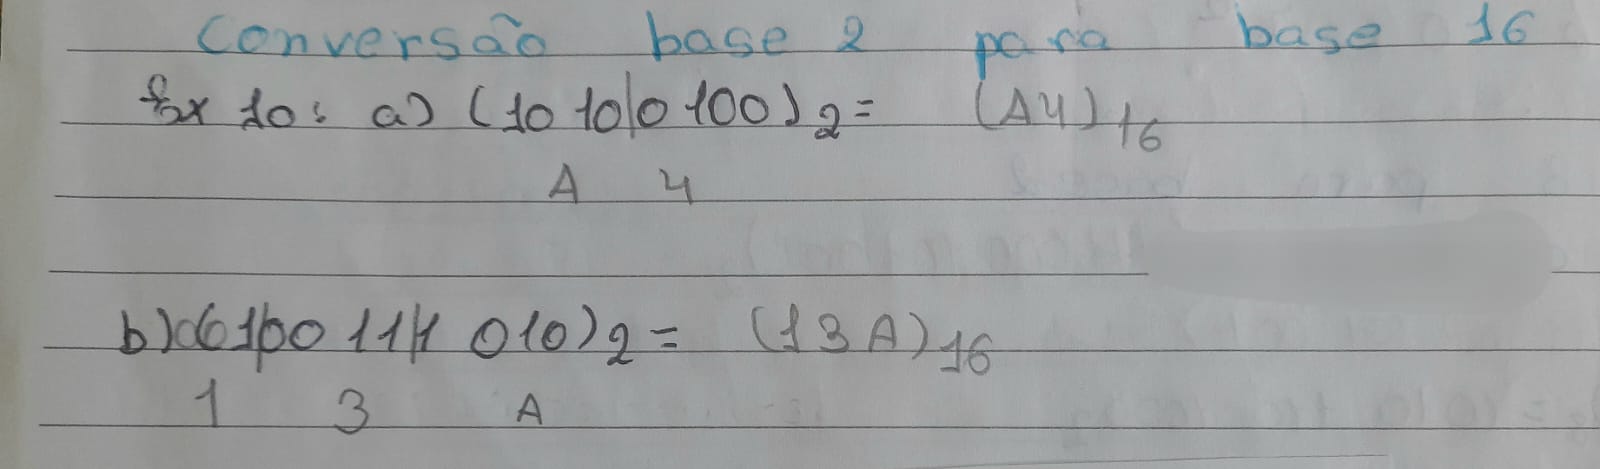 Conversão base 2 para base 16
Ex 10: a) (10 10|0 100)2 = (A4)16
A 4
b) 001|00 111|1 010)2 = (13A)16
1 3 A